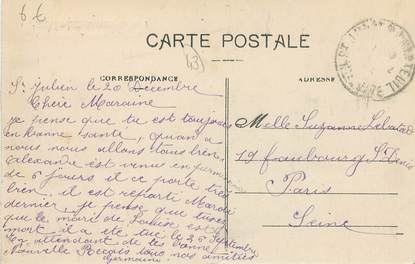 66
CARTE POSTALE
(3)
CORRESPONDANCE
ADRESSE
St Julien le 20 Décembre
Cheie Maraine
je pense que tu est toujours
en bonne santé, quan a
nous nous allons tous bien
Alexandre est venus en
de 6 jours il ce porte très
bien, il est reparti Mardi
dernier, je pense que
que le mari de Louise est
mort il a été tué le 25 Septembre
En attendant de tes bonne
Nouvelle Reçois tous nos amitiés
Germaine
Melle Suzanne
19 faubourg St Denis
Paris
Seine